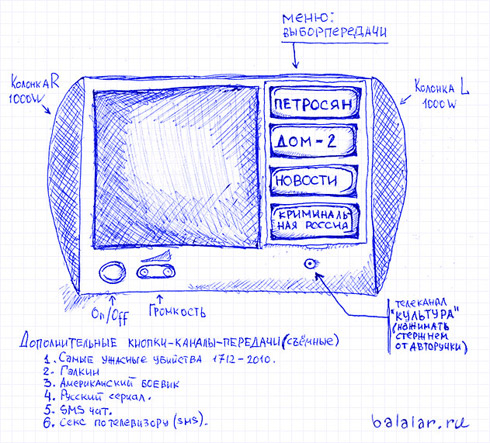 меню:
выборпередачи
Колонка R
1000W
Колонка L
1000W
ПЕТРОСЯН
ДОМ-2
НОВОСТИ
КРИМИНАЛЬ
НАЯ РОССИЯ
On/Off
Громкость
телеканал
"КУЛЬТУРА"
(нажимать
стержнем
от авторучки)
Дополнительные кнопки-каналы-передачи (съёмные)
1. Самые ужасные убийства 1712-2010.
2. Галкин
3. Американский боевик
4. Русский сериал.
5. SMS чат.
6. Секс по телевизору (sms).
balalar.ru